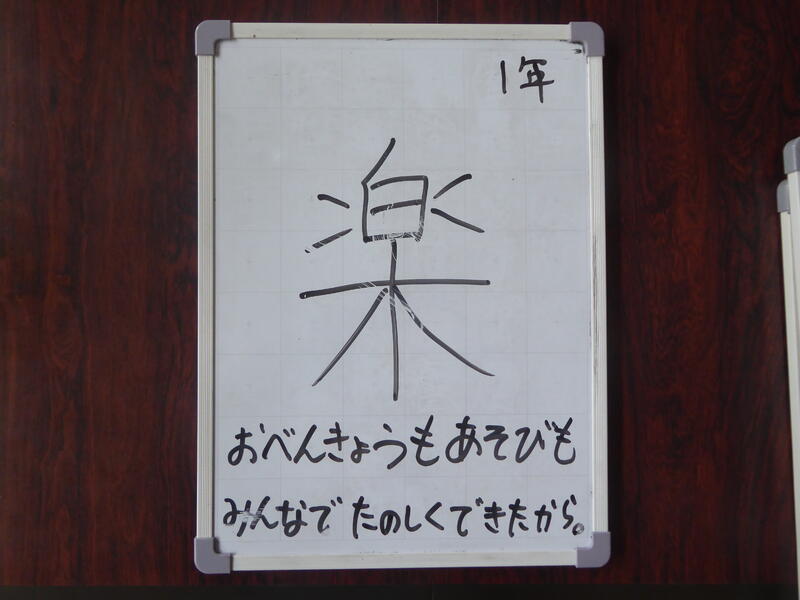 1年
楽
おべんきょうもあそびも
みんなで たのしくできたから。